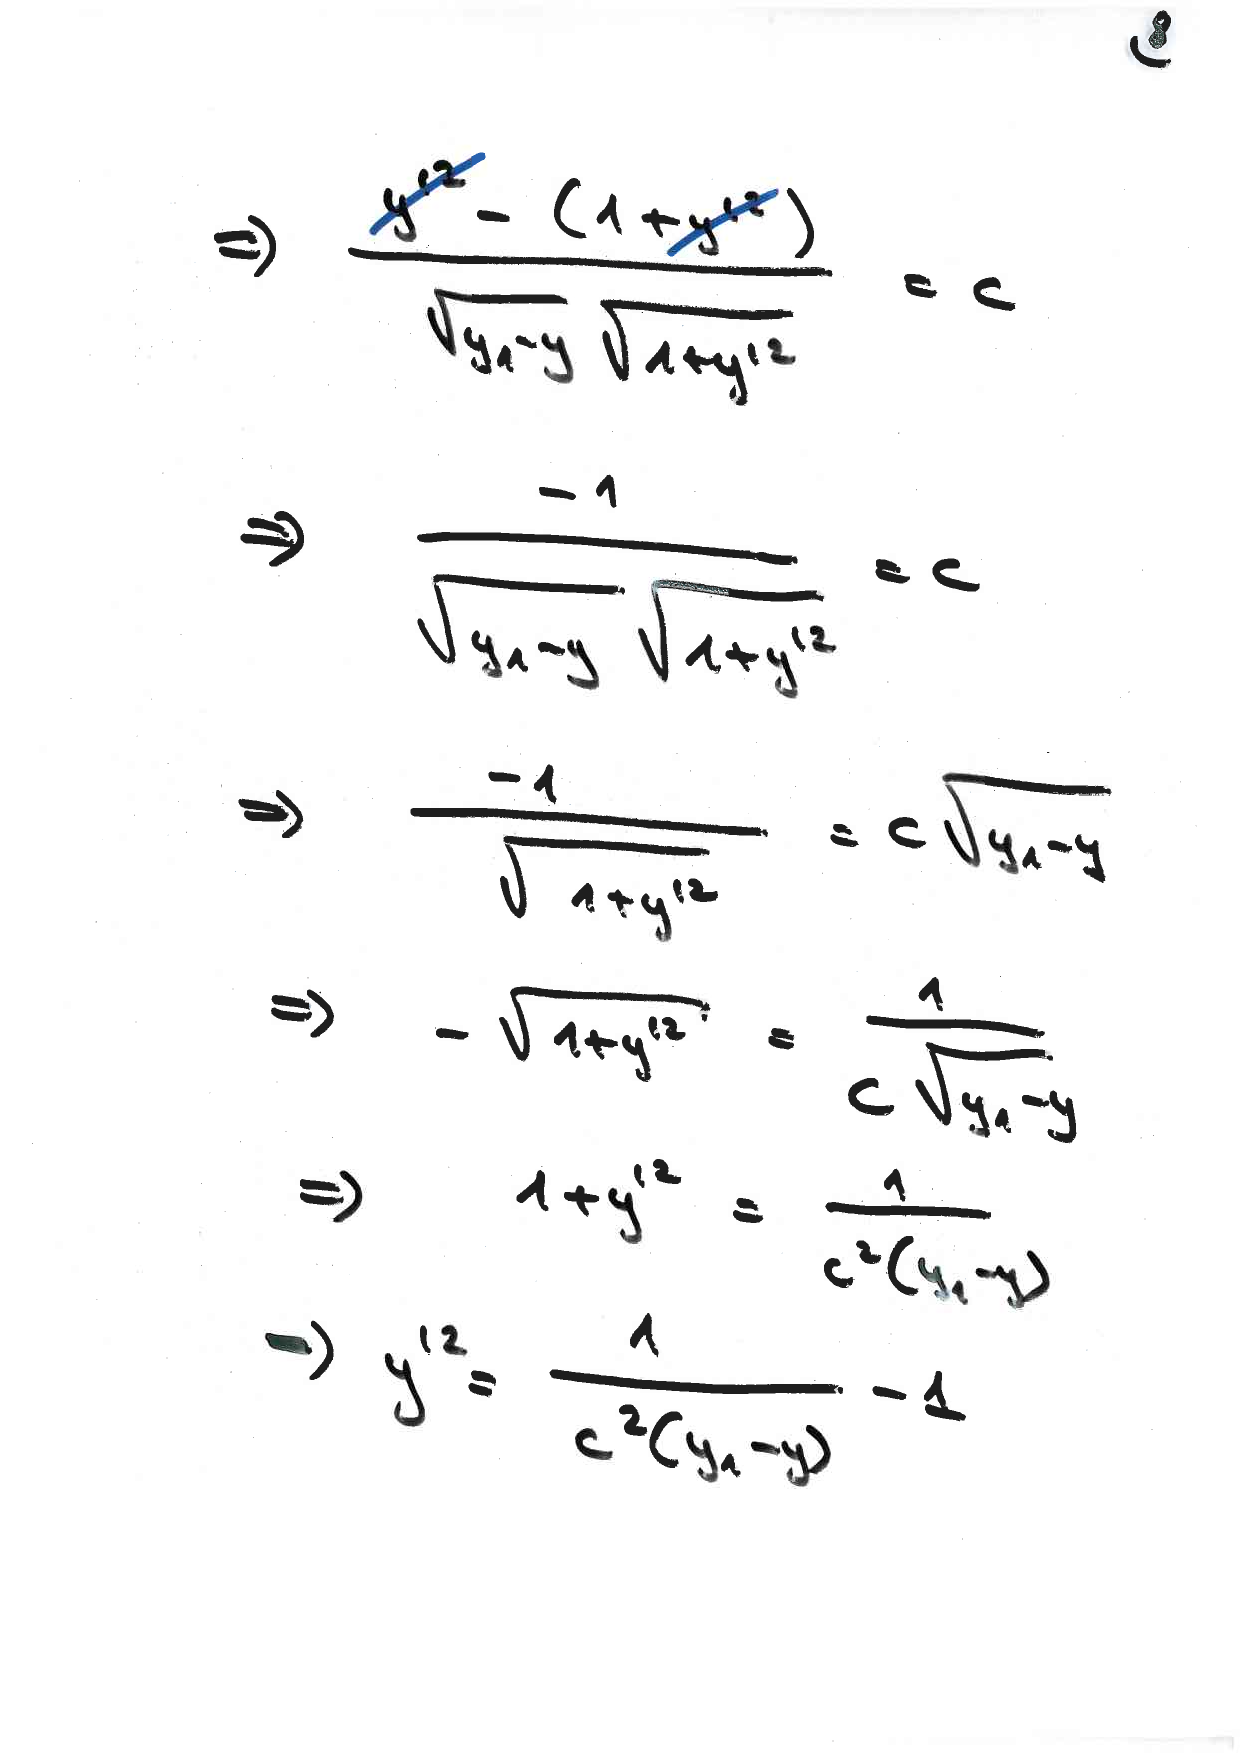 8
⇒ (y'² - (1 + y'²)) / (√(y₁-y) √(1+y'²)) = c
⇒ -1 / (√(y₁-y) √(1+y'²)) = c
⇒ -1 / √(1+y'²) = c √(y₁-y)
⇒ - √(1+y'²) = 1 / (c √(y₁-y))
⇒ 1+y'² = 1 / (c²(y₁-y))
⇒ y'² = 1 / (c²(y₁-y)) - 1